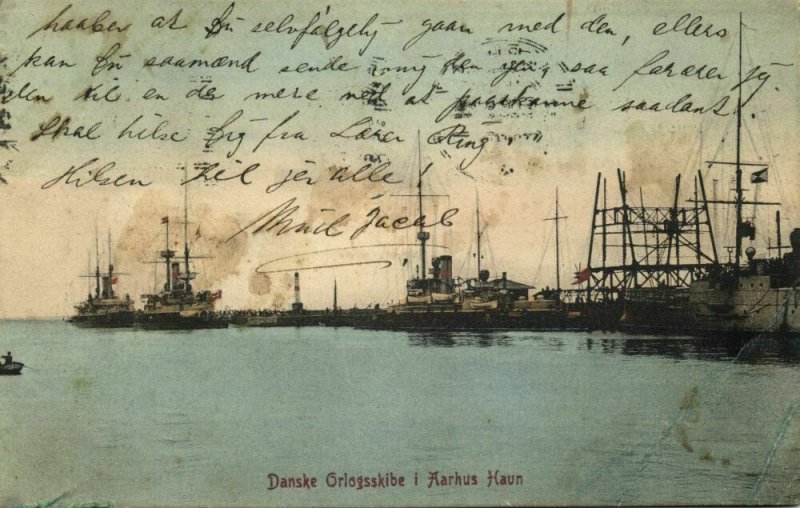 haaber at Du selvfølgelig gaar med den, ellers
kan Du saamænd sende mig den igen, saa forærer jeg
den til en der mere ved at paaskønne saadant!
Skal hilse Dig fra Lærer Ring,
Hilsen til jer alle!
Jacob
Danske Orlogsskibe i Aarhus Havn